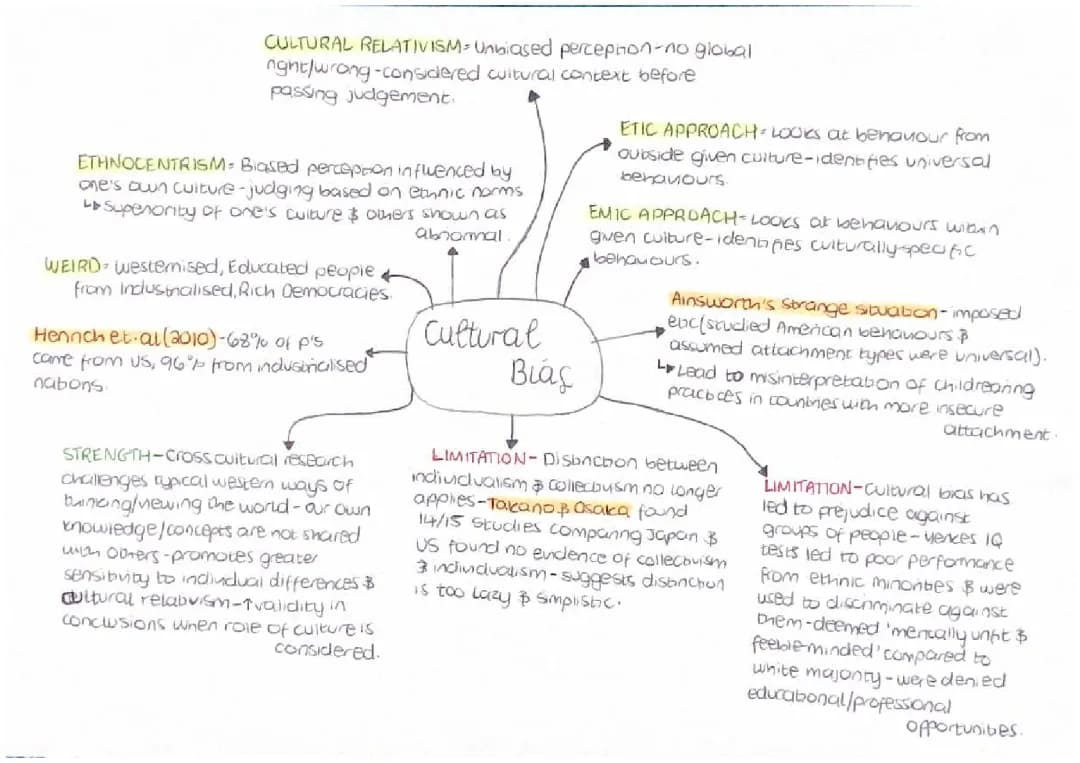 CULTURAL RELATIVISM = Unbiased perception - no global
right/wrong - considered cultural context before
passing judgement.
ETIC APPROACH = Looks at behaviour from
outside given culture - identifies universal
behaviours.
ETHNOCENTRISM = Biased perception influenced by
one's own culture - judging based on ethnic norms
↳ Superiority of one's culture & others shown as
abnormal.
EMIC APPROACH = Looks at behaviours within
given culture - identifies culturally-specific
behaviours.
WEIRD = Westernised, Educated people
from Industrialised, Rich Democracies.
Ainsworth's Strange situation - imposed
etic (studied American behaviours &
assumed attachment types were universal).
↳ Lead to misinterpretation of childrearing
practices in countries with more insecure
attachment.
Cultural
Bias
Henrich et. al (2010) - 68% of p's
came from US, 96% from industrialised
nations.
STRENGTH - Cross cultural research
challenges typical western ways of
thinking/viewing the world - our own
knowledge/concepts are not shared
with others - promotes greater
sensitivity to individual differences &
cultural relativism - ↑validity in
conclusions when role of culture is
considered.
LIMITATION - Distinction between
individualism & collectivism no longer
applies - Takano & Osaka found
14/15 studies comparing Japan &
US found no evidence of collectivism
& individualism - suggests distinction
is too lazy & simplistic.
LIMITATION - Cultural bias has
led to prejudice against
groups of people - Yerkes IQ
tests led to poor performance
from ethnic minorities & were
used to discriminate against
them - deemed 'mentally unfit &
feeble-minded' compared to
white majority - were denied
educational/professional
opportunities.